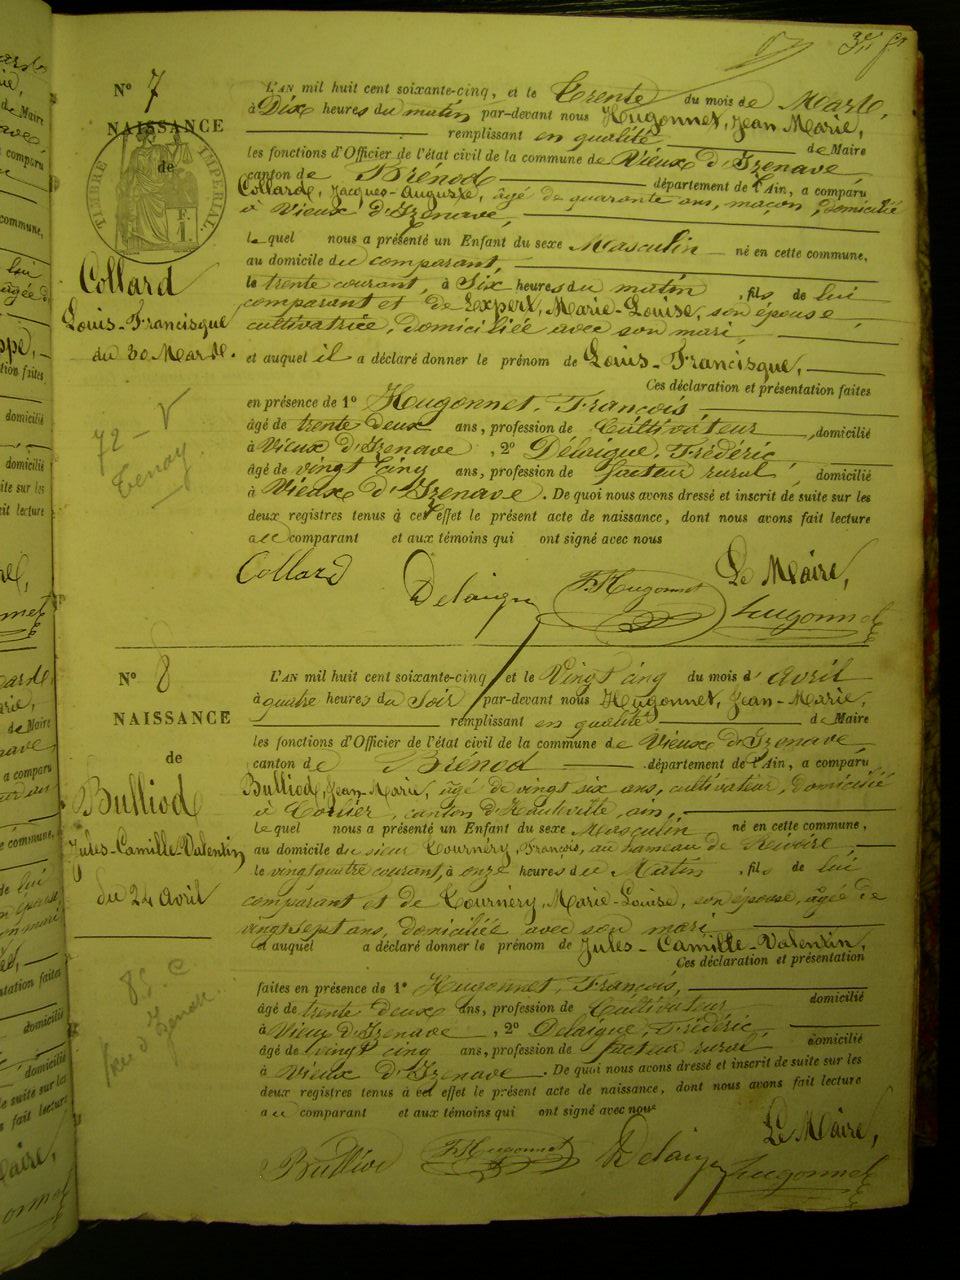 3e f
N° 7
NAISSANCE
de
TIMBRE IMPERIAL
1 F.
Collard
Louis-Francisque
du 30 Mars.
72 - V
Tenay
L'AN mil huit cent soixante-cinq, et le Trente du mois de Mars,
à Dix heures du matin par-devant nous Hugonnet, Jean Marie,
remplissant en qualité de Maire
les fonctions d'Officier de l'état civil de la commune de Vieux d'Izenave,
canton de Brénod département de l'Ain, a comparu
Collard, Jacques-Auguste, âgé de quarante ans, maçon, domicilié
à Vieux d'Izenave,
le quel nous a présenté un Enfant du sexe Masculin né en cette commune,
au domicile du comparant,
le trente courant, à Six heures du matin, fils de lui
comparant et de Expert, Marie-Louise, son épouse,
cultivatrice, domiciliée avec son mari,
et auquel il a déclaré donner le prénom de Louis-Francisque,
Ces déclaration et présentation faites
en présence de 1° Hugonnet, François,
âgé de trente deux ans, profession de Cultivateur, domicilié
à Vieux d'Izenave, 2° Délaigue, Frédéric,
âgé de vingt cinq ans, profession de facteur rural, domicilié
à Vieux d'Izenave. De quoi nous avons dressé et inscrit de suite sur les
deux registres tenus à cet effet le présent acte de naissance, dont nous avons fait lecture
au comparant et aux témoins qui ont signé avec nous
Le Maire,
Collard Delaigue F. Hugonnet Hugonnet
N° 8
NAISSANCE
de
Bulliod
Jules-Camille-Valentin
du 24 Avril
85. C
L'AN mil huit cent soixante-cinq et le Vingt cinq du mois d'avril
à quatre heures du Soir par-devant nous Hugonnet, Jean-Marie,
remplissant en qualité de Maire
les fonctions d'Officier de l'état civil de la commune de Vieux d'Izenave,
canton de Brénod département de l'Ain, a comparu
Bulliod, Jean-Marie, âgé de vingt six ans, cultivateur, domicilié
à Corlier, canton d'Hauteville, ain,
le quel nous a présenté un Enfant du sexe Masculin né en cette commune,
au domicile du sieur Tournéry, François, au hameau de
le vingt quatre courant, à onze heures du Matin, fils de lui
comparant et de Tournéry, Marie-Louise, son épouse, âgée de
vingt sept ans, domiciliée avec son mari,
et auquel a déclaré donner le prénom de Jules-Camille-Valentin,
Ces déclaration et présentation
faites en présence de 1° Hugonnet, François,
âgé de trente deux ans, profession de Cultivateur domicilié
à Vieux d'Izenave, 2° Delaigue, Frédéric,
âgé de vingt cinq ans, profession de facteur rural domicilié
à Vieux d'Izenave. De quoi nous avons dressé et inscrit de suite sur les
deux registres tenus à cet effet le présent acte de naissance, dont nous avons fait lecture
au comparant et aux témoins qui ont signé avec nous
Le Maire,
Bulliod F. Hugonnet Delaigue Hugonnet